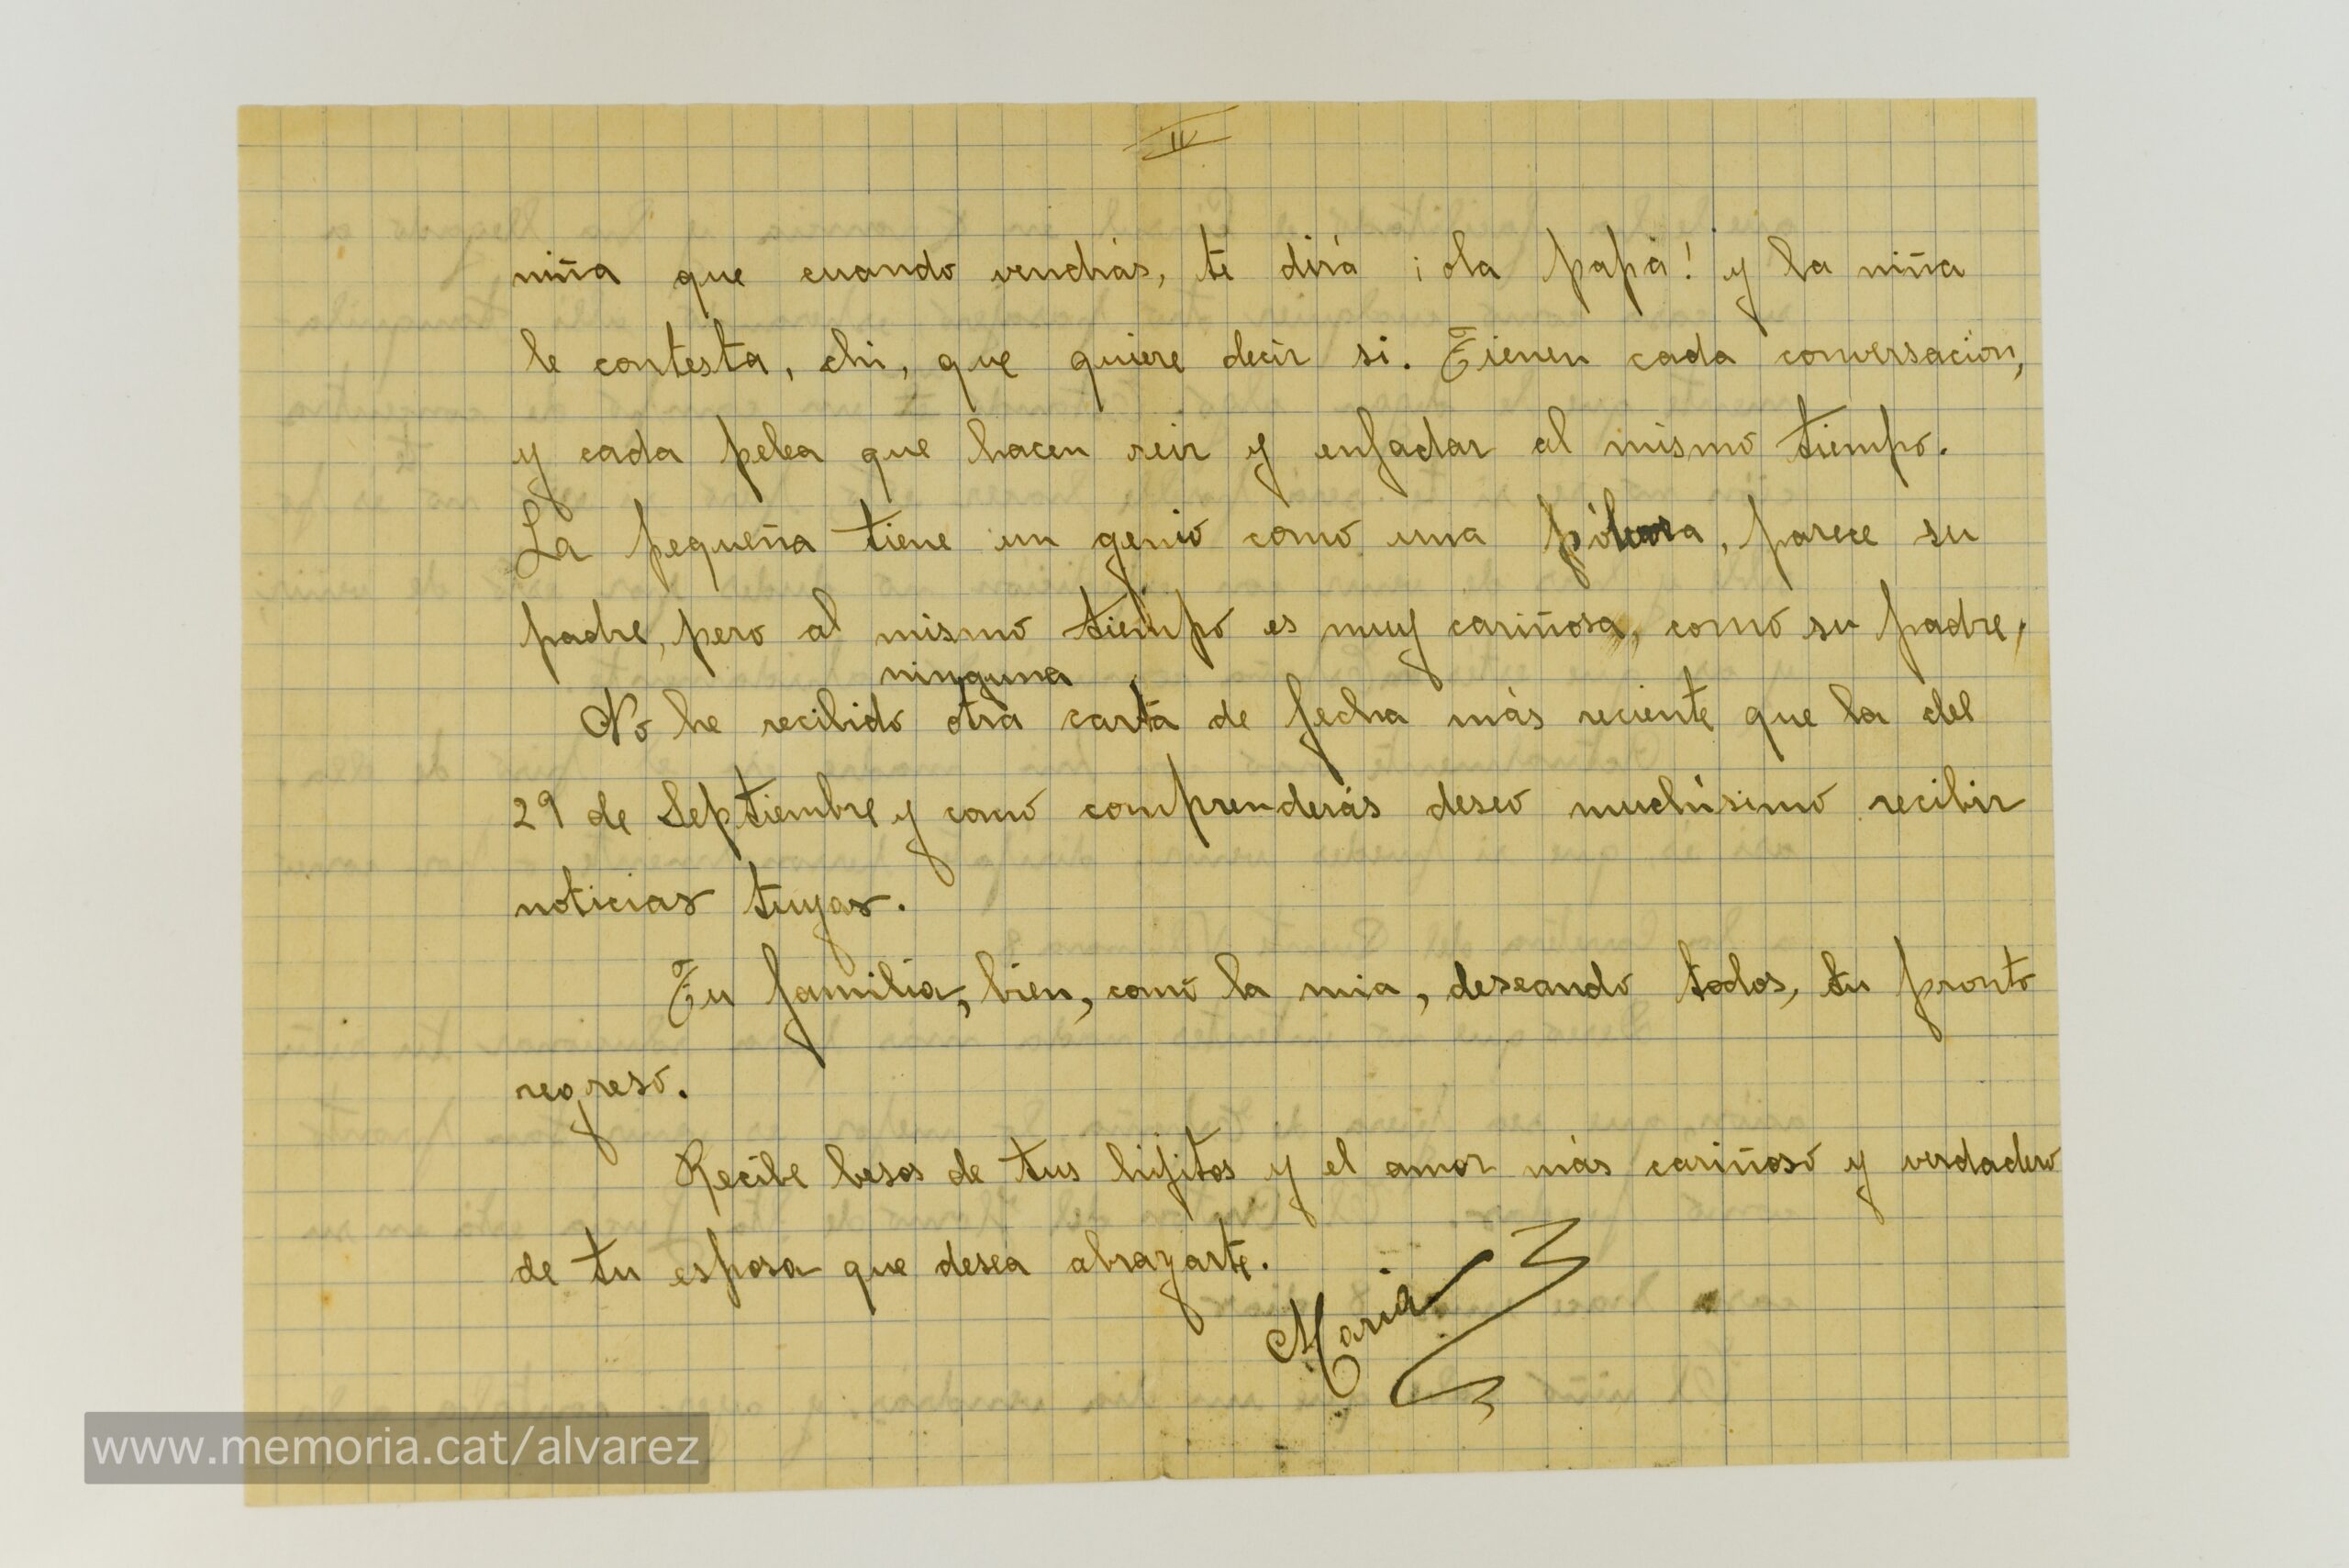 IV
niña que cuando vendrás, te dirá ¡ola papá! y la niña
le contesta, chi, que quiere decir si. Tienen cada conversación,
y cada pelea que hacen reir y enfadar al mismo tiempo.
La pequeña tiene un genio como una pólvora, parece su
padre, pero al mismo tiempo es muy cariñosa, como su padre,
ninguna
No he recibido otra carta de fecha más reciente que la del
29 de Septiembre y como comprenderás deseo muchísimo recibir
noticias tuyas.
Tu familia, bien, como la mia, deseando todos, tu pronto
regreso.
Recibe besos de tus hijitos y el amor más cariñoso y verdadero
de tu esposa que desea abrazarte.
Maria
www.memoria.cat/alvarez